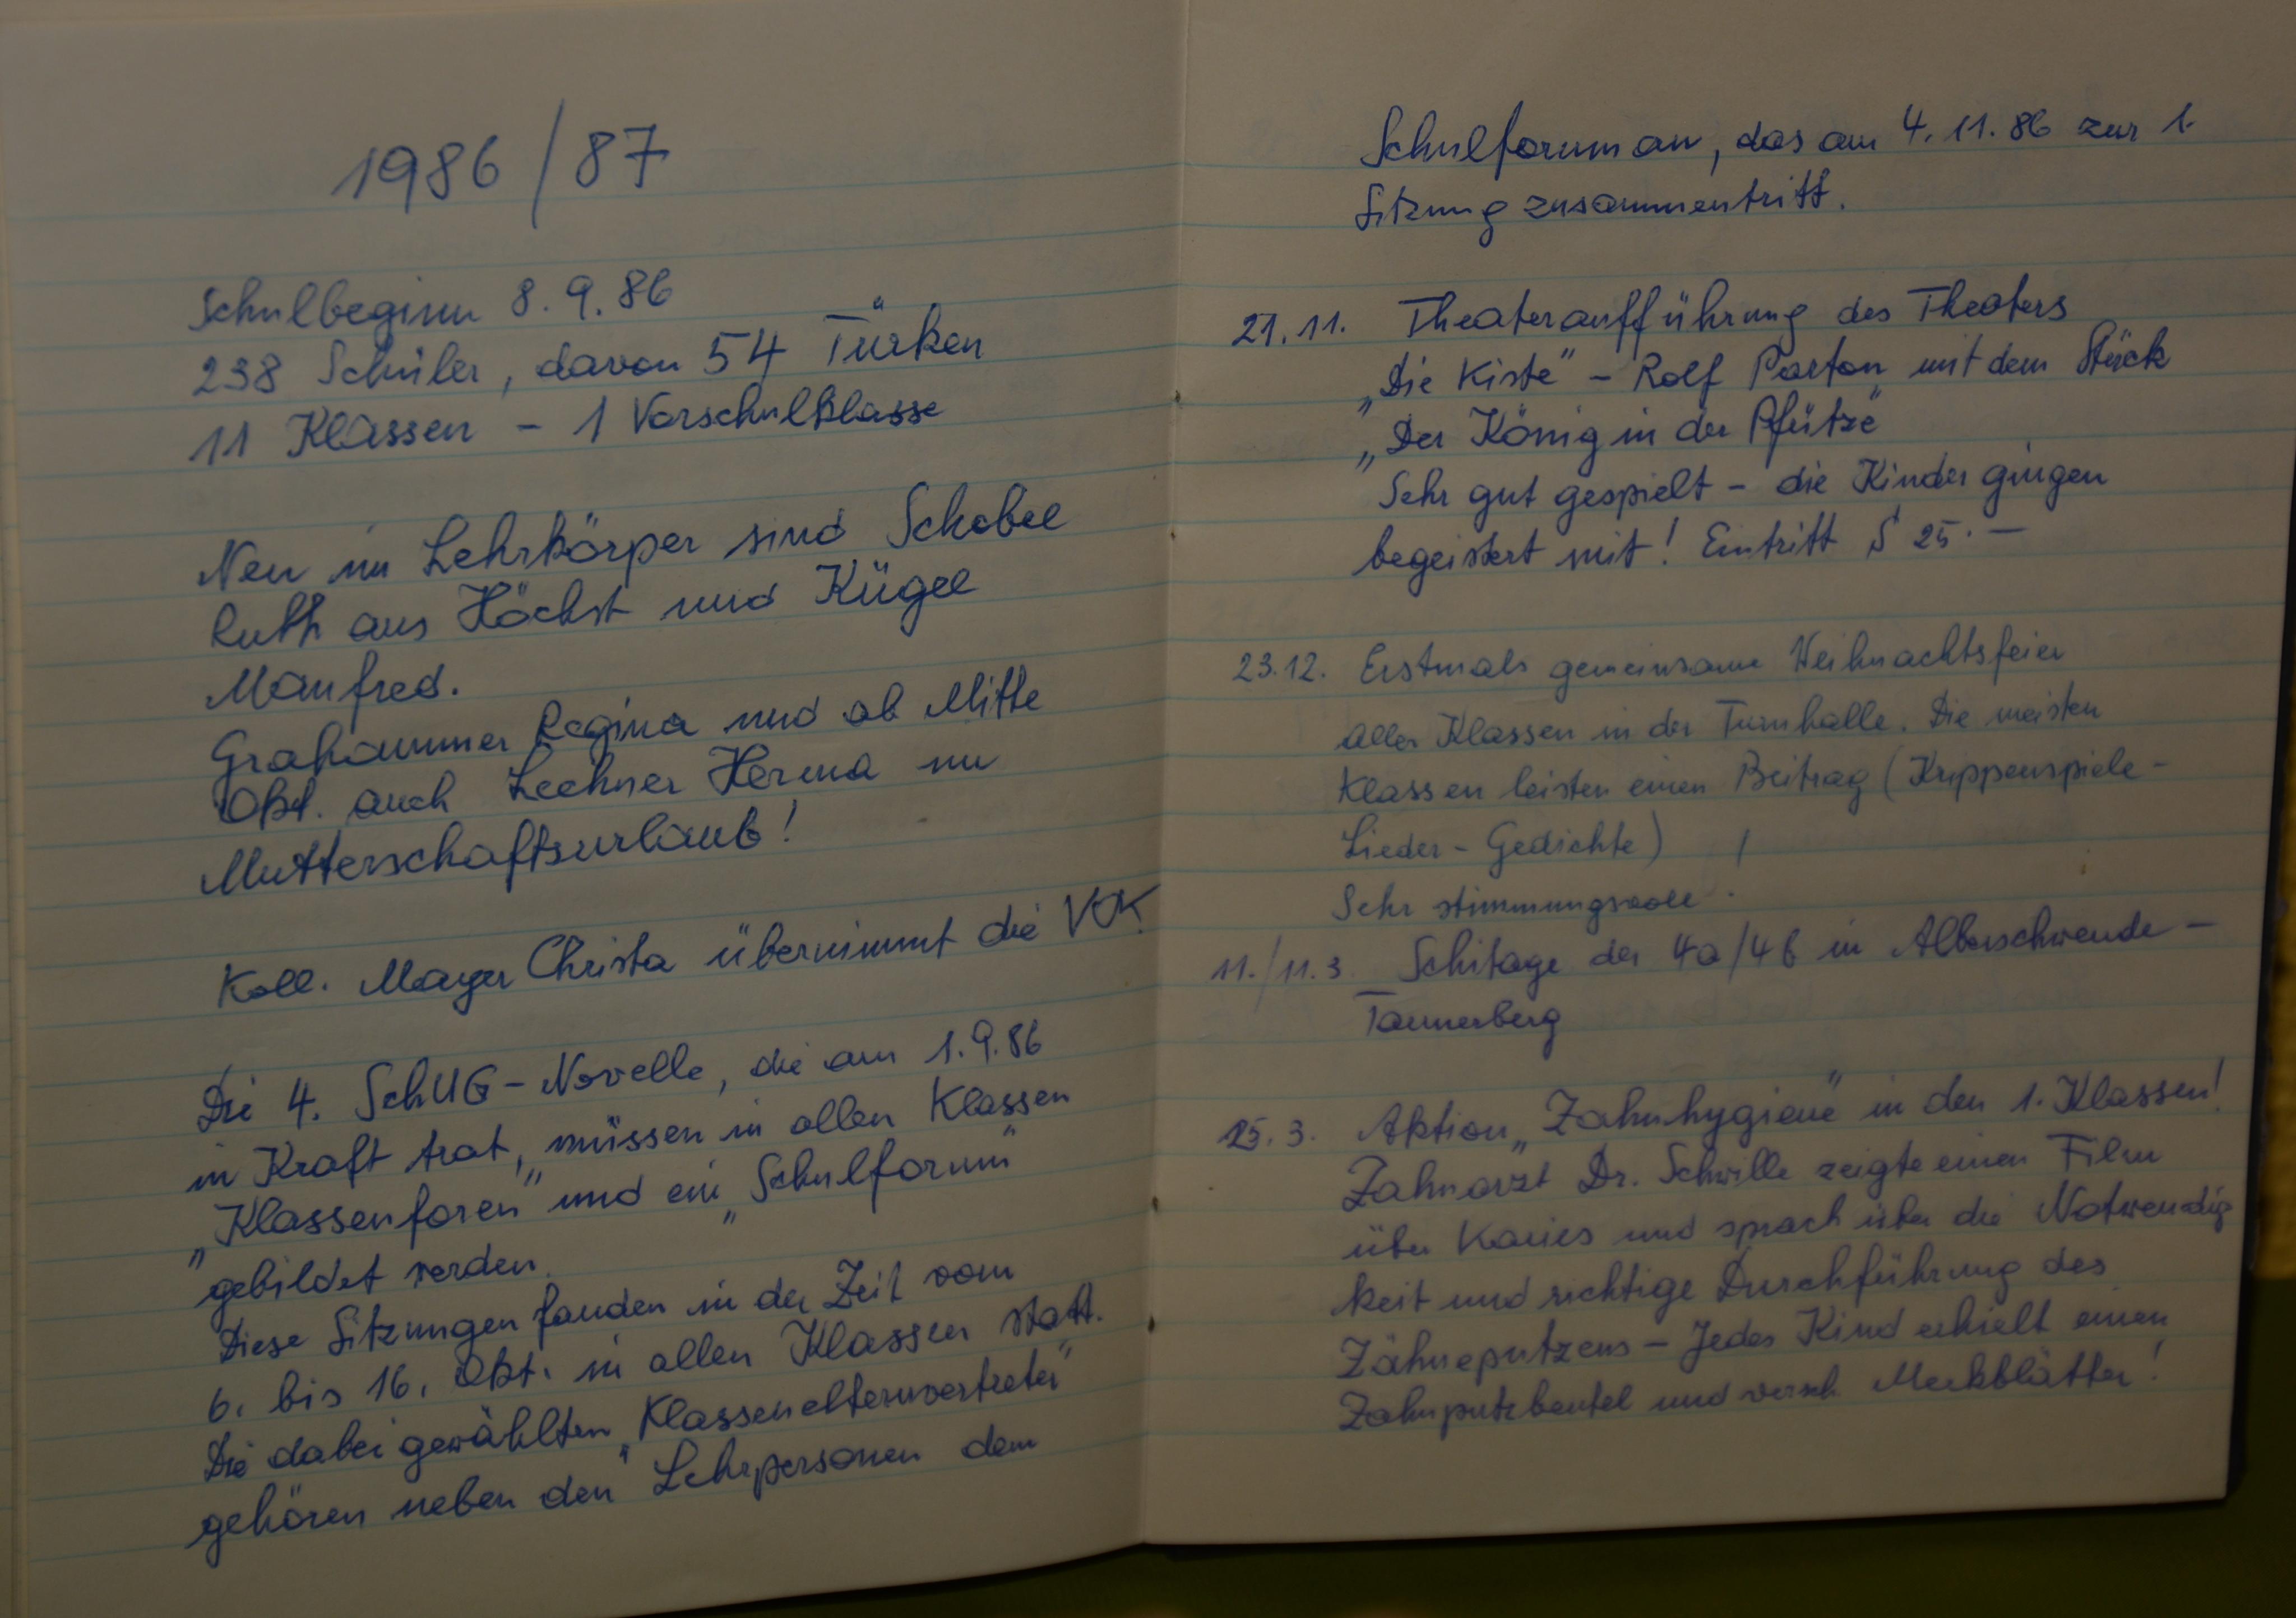 1986/87
Schulbeginn 8.9.86
238 Schüler, davon 54 Türken
11 Klassen - 1 Vorschulklasse
Neu im Lehrkörper sind Schobel
Ruth aus Höchst und Kügel
Manfred.
Grahammer Regina und ab Mitte
Okt. auch Lechner Herma im
Mutterschaftsurlaub!
Koll. Mayer Christa übernimmt die VK.
Die 4. SchUG-Novelle, die am 1.9.86
in Kraft trat, müssen in allen Klassen
„Klassenforen" und ein „Schulforum"
gebildet werden.
Diese Sitzungen fanden in der Zeit vom
6. bis 16. Okt. in allen Klassen statt.
Die dabei gewählten „Klassenelternvertreter"
gehören neben den Lehrpersonen dem
Schulforum an, das am 4.11.86 zur 1.
Sitzung zusammentritt.
21.11. Theateraufführung des Theaters
„Die Kiste" - Rolf Parton mit dem Stück
„Der König in der Pfütze"
Sehr gut gespielt - die Kinder gingen
begeistert mit! Eintritt S 25.-
23.12. Erstmals gemeinsame Weihnachtsfeier
aller Klassen in der Turnhalle. Die meisten
Klassen leisten einen Beitrag (Krippenspiele-
Lieder - Gedichte)
Sehr stimmungsvoll!
11./11.3. Schitage der 4a/4b in Alberschwende -
Tannerberg
25.3. Aktion „Zahnhygiene" in den 1. Klassen!
Zahnarzt Dr. Schwille zeigte einen Film
über Karies und sprach über die Notwendig
keit und richtige Durchführung des
Zähneputzens - Jedes Kind erhielt einen
Zahnputzbeutel und versch. Merkblätter!